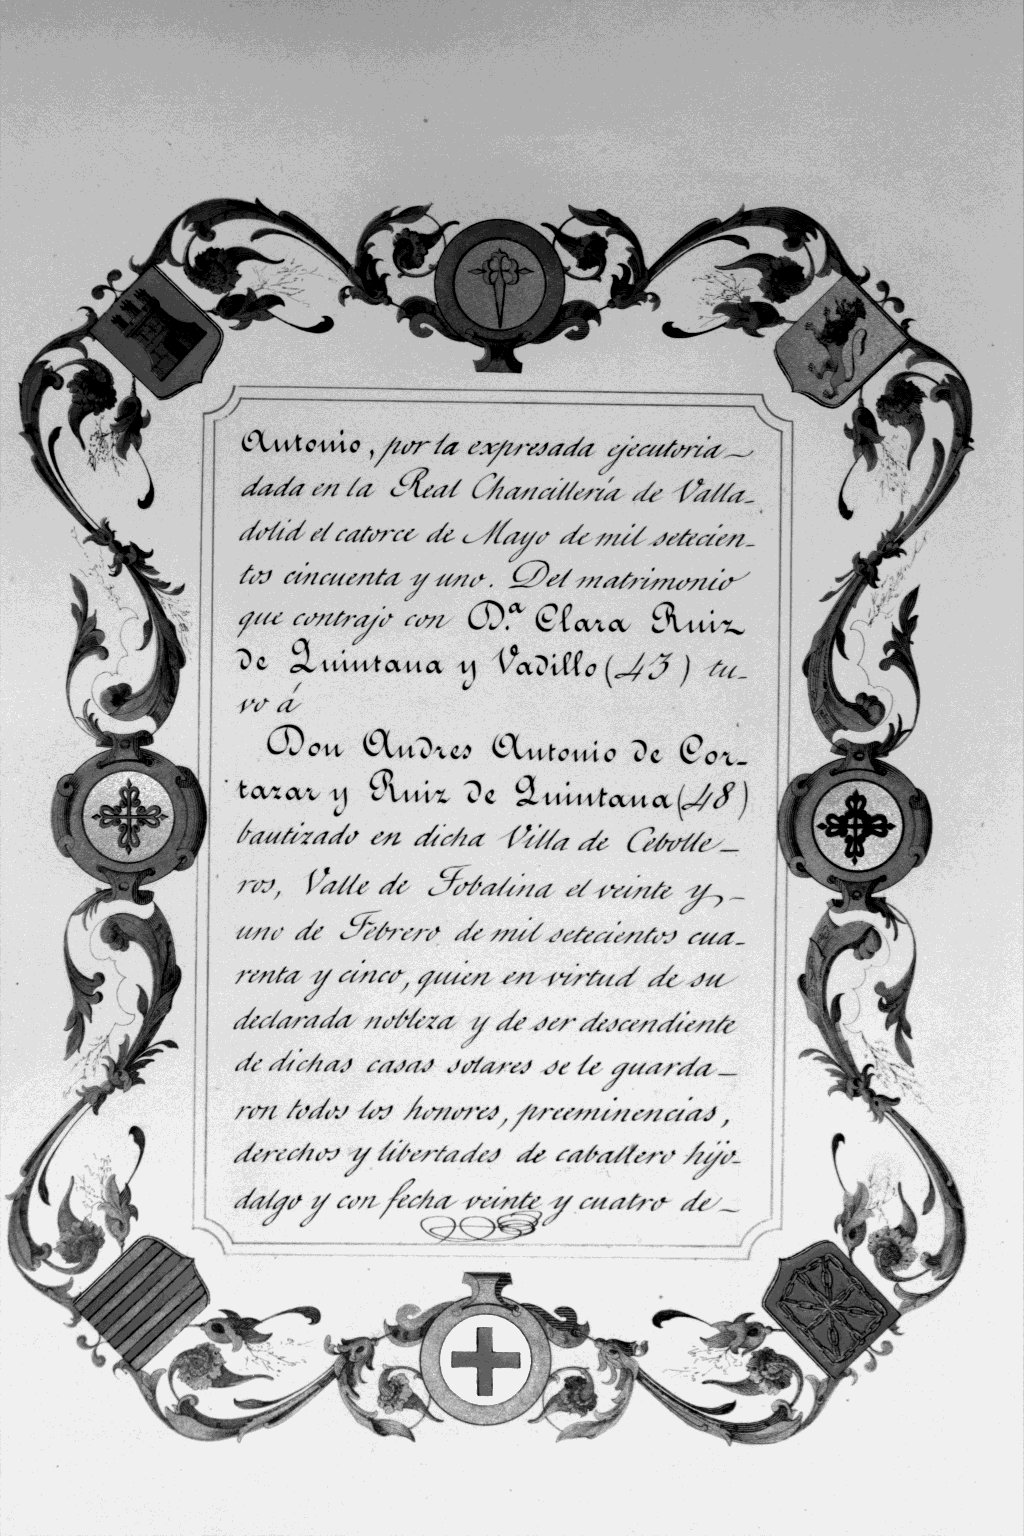 Antonio, por la expresada ejecutoria—
dada en la Real Chancillería de Valla-
dolid el catorce de Mayo de mil setecien-
tos cincuenta y uno. Del matrimonio
que contrajo con D.ª Clara Ruiz
de Quintana y Vadillo (43) tu-
vo á
Don Andres Antonio de Cor-
tazar y Ruiz de Quintana (48)
bautizado en dicha Villa de Cebolle—
ros, Valle de Tobalina el veinte y—
uno de Febrero de mil setecientos cua-
renta y cinco, quien en virtud de su
declarada nobleza y de ser descendiente
de dichas casas solares se le guarda—
ron todos los honores, preeminencias,
derechos y libertades de caballero hijo-
dalgo y con fecha veinte y cuatro de—